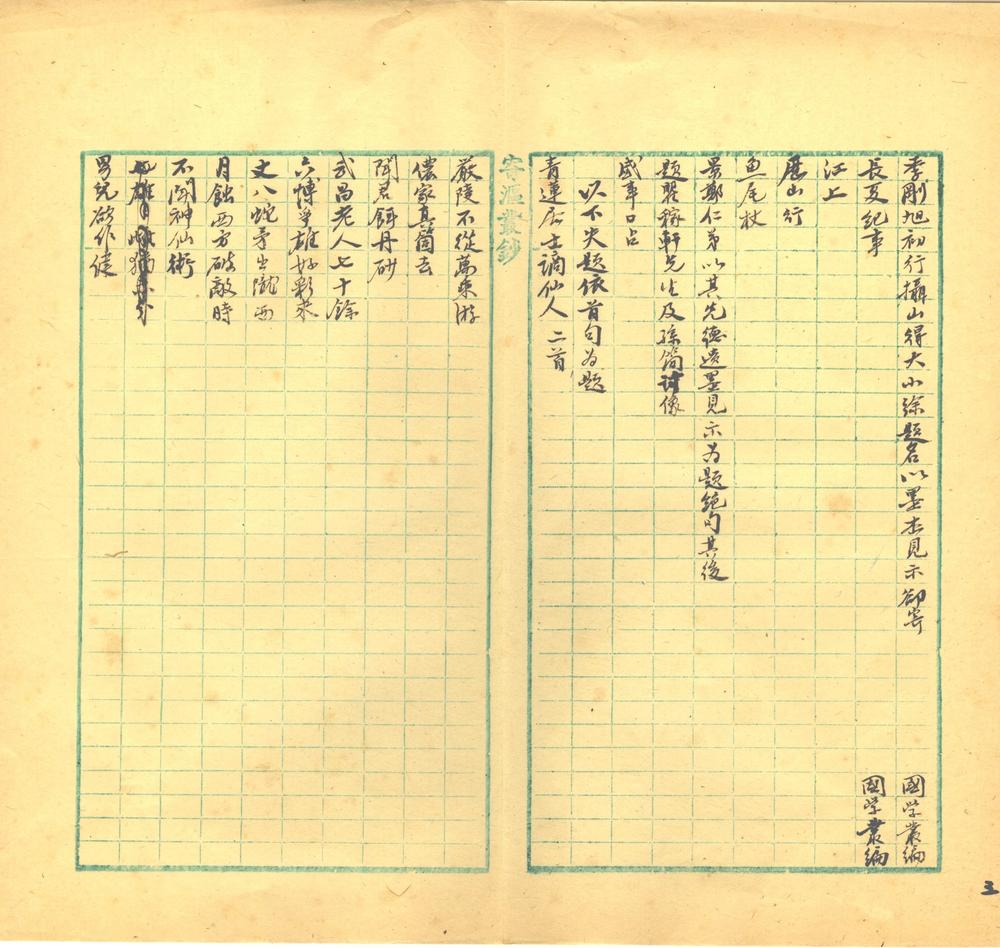 季剛旭初行攝山得大小徐題名以墨本見示卻寄　國学叢編
長夏紀事　國学叢編
江上
歷山行
魚尾杖
景鄭仁弟以其先德遺墨見示為題絕句其後
題翟稼軒先生及孫簡討像
感事口占
以下失題依首句為題
青蓮居士謫仙人 二首
寄漚叢鈔
嚴陵不從萬乘游
儂家真箇去
聞君餌丹砂
武昌老人七十餘
六博爭雄好彩來
丈八蛇矛出隴西
月蝕西方破敵時
不聞神仙術
男兒欲作健
3